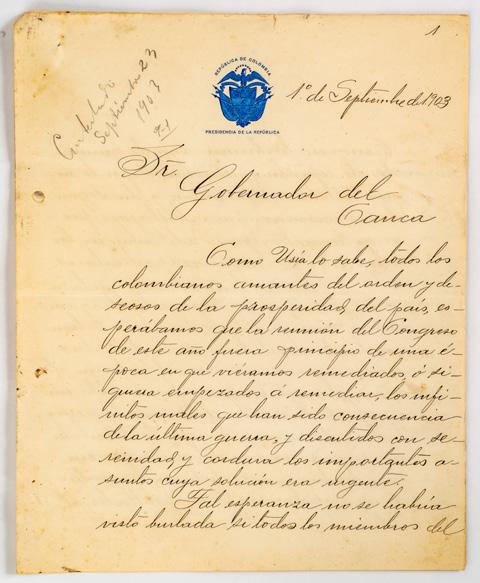 1
Contestado
Septiembre 23
1903
REPÚBLICA DE COLOMBIA
PRESIDENCIA DE LA REPÚBLICA
1º de Septiembre de 1903
Sr.
Gobernador del
Cauca
Como Usía lo sabe, todos los
colombianos amantes del orden y de-
seosos de la prosperidad del país, es-
perábamos que la reunión del Congreso
de este año fuera principio de una é-
poca en que viéramos remediados, ó si-
quiera empezados á remediar, los infi-
nitos males que han sido consecuencia
de la última guerra, y discutidos con se-
renidad y cordura los importantes a-
suntos cuya solución era urgente.
Tal esperanza no se habría
visto burlada si todos los miembros del